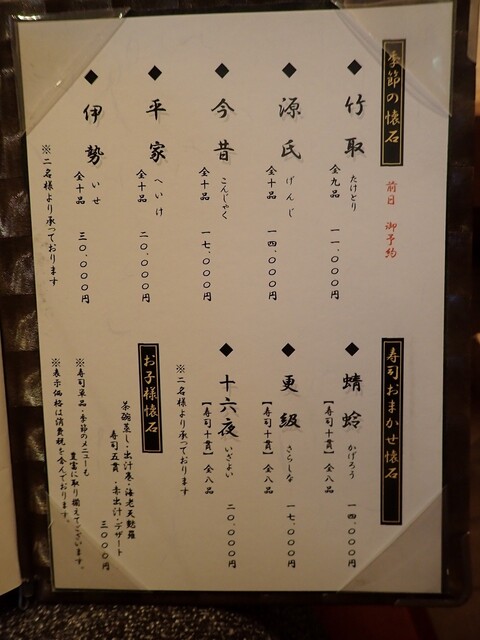 季節の懐石
前日 御予約
◆竹取 たけとり
全九品 一一、〇〇〇円
◆源氏 げんじ
全十品 一四、〇〇〇円
◆今昔 こんじゃく
全十品 一七、〇〇〇円
◆平家 へいけ
全十品 二〇、〇〇〇円
◆伊勢 いせ
全十品 三〇、〇〇〇円
※二名様より承っております
寿司おまかせ懐石
◆蜻蛉 かげろう
【寿司十貫】全八品 一四、〇〇〇円
◆更級 さらしな
【寿司十貫】全八品 一七、〇〇〇円
◆十六夜 いざよい
【寿司十貫】全八品 二〇、〇〇〇円
※二名様より承っております
お子様懐石
茶碗蒸し・出汁巻・海老天麩羅
寿司五貫・赤出汁・デザート
三〇〇〇円
※寿司単品・季節のメニューも
豊富に取り揃えてございます。
※表示価格は消費税を含んでおります。